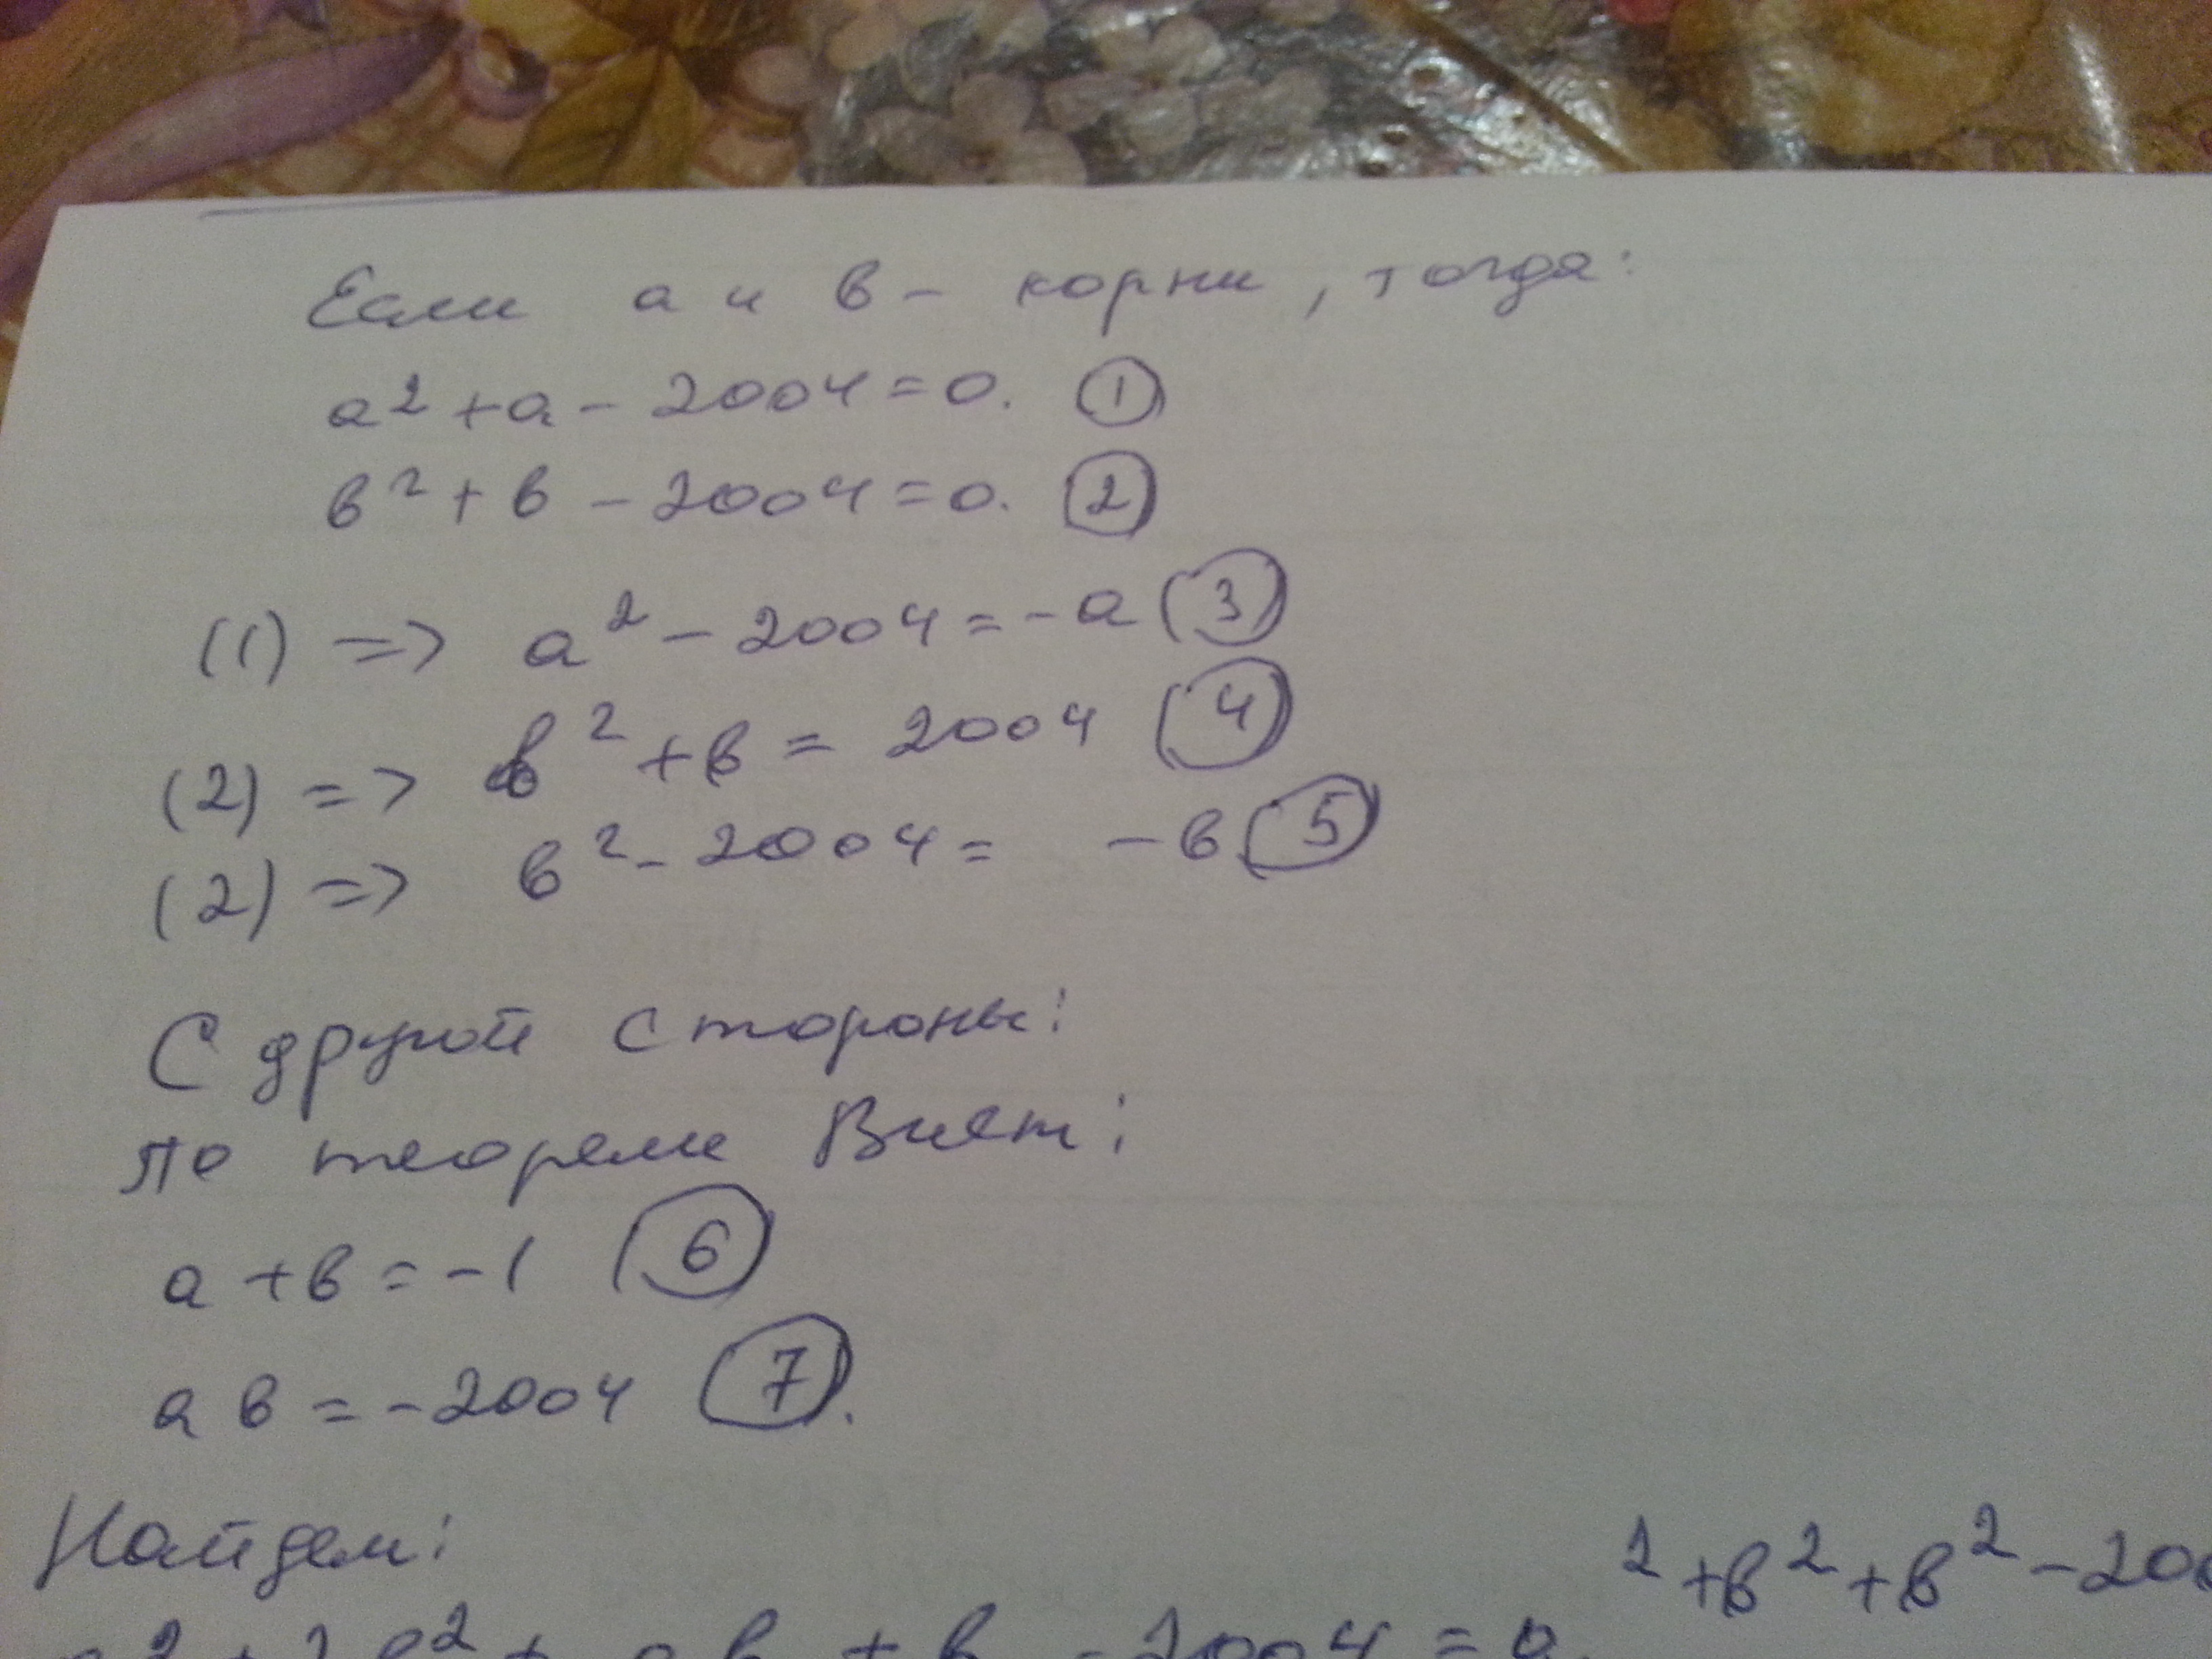 Если а и в – корни, тогда:
а² + а – 2004 = 0. ①
в² + в – 2004 = 0. ②
(1) => а² – 2004 = – а (3)
(2) => в² + в = 2004 (4)
(2) => в² – 2004 = – в (5)
С другой стороны:
по теореме Виет:
а + в = – 1 (6)
а в = – 2004 (7).
Найдем:
² + в² + в² – 200
а² + 2в² + ав + в – 2004 = а